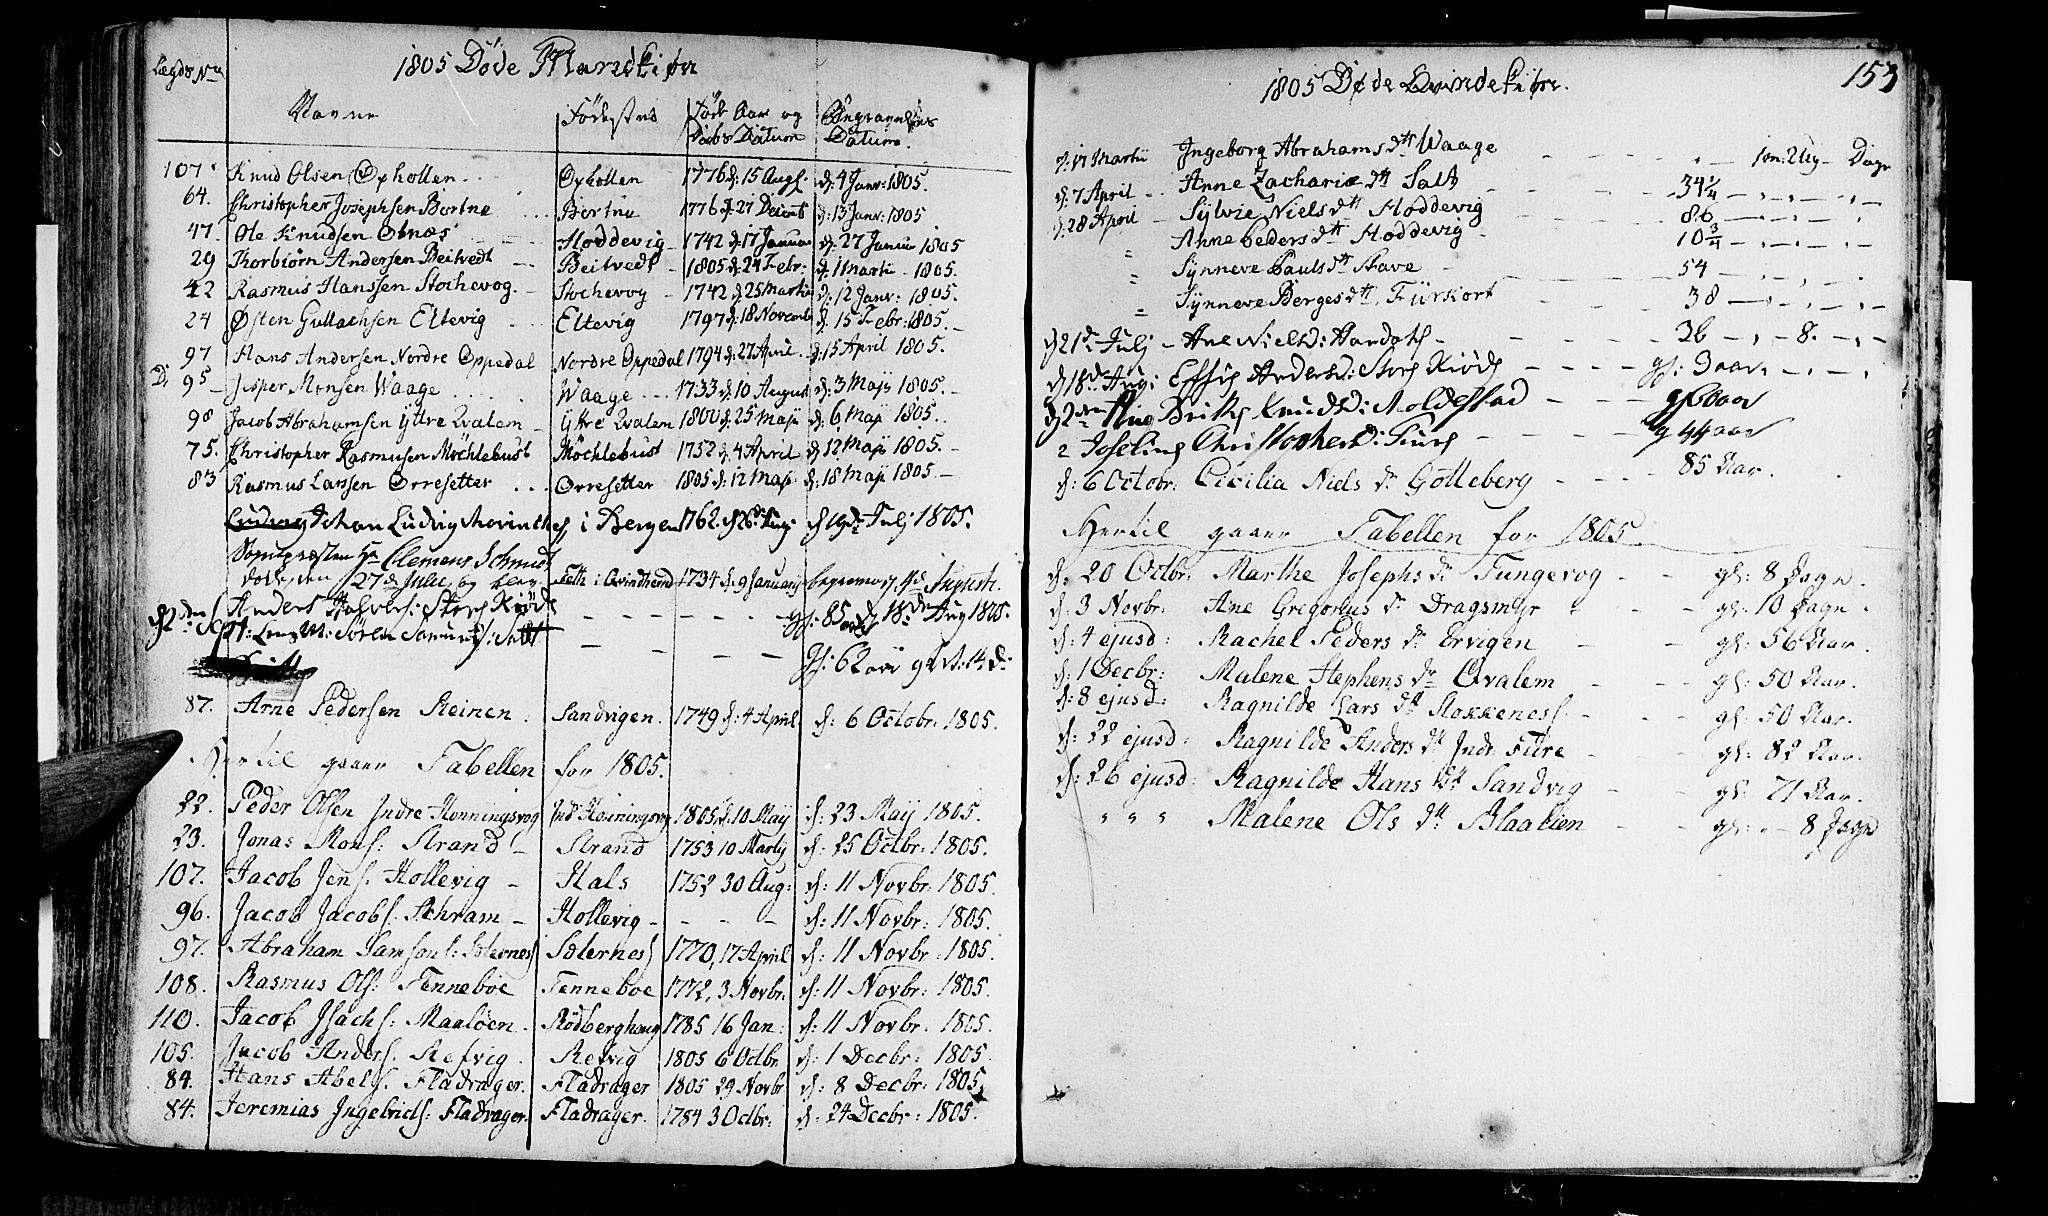 1805 Døde Mandkiøn
Lægds No
Navne Fødested Føds Aar og Daabs Datum Begravelses Datum.
107. Knud Olsen Oxhollen Oxhollen 1776 d: 15 Aug. d: 4 Janr: 1805.
64. Christopher Josephsen Bortne Bortne 1776 d: 27 Decemb d: 13 Janr: 1805
47. Ole Knudsen Hoddevig 1742 d: 17 Januar d: 27 Januar 1805
29 Thorbiørn Andersen Beitvedt Beitvedt 1805 d: 24 Febr: d: 1 Martii 1805.
42 Rasmus Hanssen Stochevog Stochevog 1742 d: 25 Martii d: 12 Janr: 1805.
24 Østen Gullachsen Eltevig Eltevig 1797 d: 18 Novemb d: 15 Febr: 1805.
97 Hans Andersen Nordre Oppedal Nordre Oppedal 1794 d: 27 April d: 15 April 1805.
95 Jesper Monsen Waage Waage 1733 d: 10 August d: 3 Maji 1805.
98 Jacob Abrahamsen Yttre Qvalem Yttre Qvalem 1800 d: 25 Maji d: 6 Maji 1805.
75. Christopher Rasmusen Møchlebust Møchlebust 1752 d: 4 April d: 12 Maji 1805.
83 Rasmus Larsen Orresetter Orresetter 1805 d: 12 Maji d: 18 Maji 1805
Johan Ludvig i Bergen 1762. d: 26 d: 19de Julj 1805.
Sognepræsten Hr Clemens Schmidt
døde den 27 de Julii, og 1734 d: 9 Januarij begraven d. 4de Augusti.
Anders d: 18de Aug 1805.
Sept: Søren
gl: 62
87. Arne Pedersen Reinen Sandvigen. 1749 d: 4 April. d: 6 Octobr: 1805.
Hertil gaaer Tabellen for 1805.
22. Peder Olsen Indre Honningsvog Ind: Honingsvog 1805 d: 10 Maij d: 23 Maij 1805.
23. Jonas Mons: Strand Strand 1753 10 Martij d: 25 Octbr: 1805.
107. Jacob Jens: Hollevig Hals 1752 30 Aug: d: 11 Novbr: 1805.
96. Jacob Jacobs: Schram Hollevig d: 11 Novbr: 1805.
97. Abraham Samsons: Sølernes Sølernes 1770, 17 April d: 11 Novbr: 1805.
108. Rasmus Ols: Tenneboe Tenneboe 1772, 3 Novbr. d: 11 Novbr: 1805.
110. Jacob Isachs: Maaløen Rødberghoug 1785 16 Jan: d: 11 Novbr: 1805.
105. Jacob Anders: Refvig Refvig 1805 6 Octbr d: 1 Decbr: 1805.
84. Hans Abels: Fladrager. Fladrager 1805 29 Novbr d: 8 Decbr: 1805
84. Jeremias Ingebrichs: Fladrager. Fladrager. 1784 3 Octbr: d: 24 Decbr: 1805.
153
1805 Døde Qvindekiøn.
d: 17 Martii Ingeborg Abrahams dtt Waage 1 m: 2 Ug Dage
d: 7 April Anne Zachariæ dtt Salt 34¼
d: 28 April Sylvie Niels dtt Hoddevig 86
Anne Peders dtt Hoddevig 10¾
Synneve Pauls dtt Stave 54
Synneve Berges dtt Fürskort 38
d 21de Julj Ane Niels D: 36 8.
d 18de Aug: Anders D: gl: 3 aar
Knuds D: Moldestad g 60 aar
Christopher D: g 44 aar
d: 6 Octobr: Cicilia Niels dr Gotteberg 85 Aar.
Hertil gaaer Tabellen for 1805.
d: 20 Octbr: Marthe Josephs dr Tungevog gl: 8 Dage.
d: 3 Novbr: Ane Gregorius dr Dragsmyr gl: 10 Dage.
d: 4 ejusd: Rachel Peders dr Ervigen gl: 56 Aar.
d: 1 Decbr: Malene Stephens dr Qvalem gl: 50 Aar.
d: 8 ejusd: Ragnilde Lars dtt Stokkenes gl: 50 Aar.
d: 22 ejusd: Ragnilde Anders dtt Indr: Fure gl: 82 Aar.
d: 26 ejusd: Ragnilde Hans dtt Sandvig gl: 71 Aar.
" " " Malene Ols dtt Blaalien gl: 8 Dage